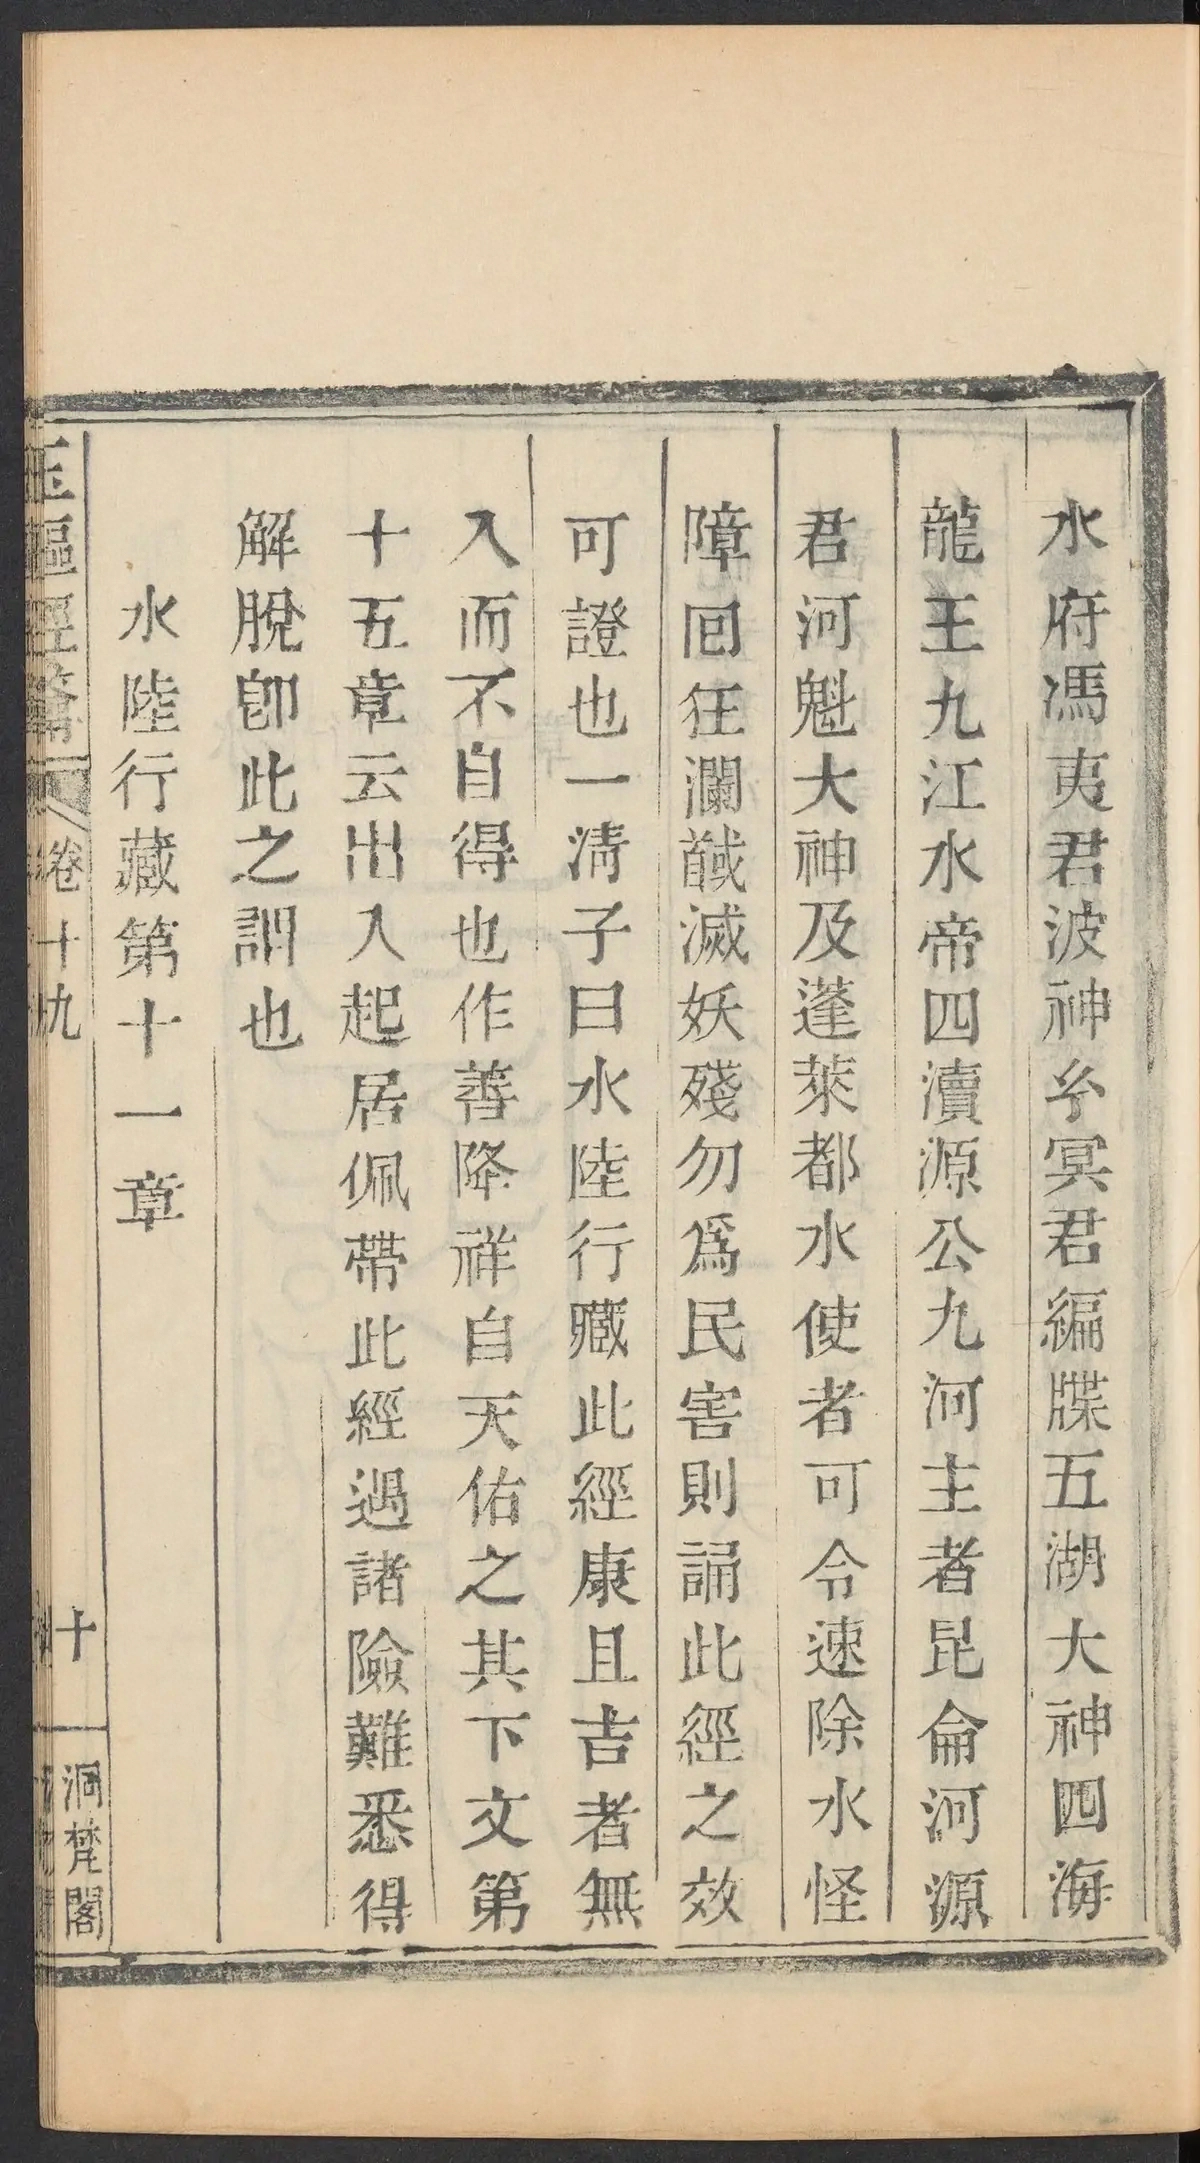 水府馮夷君波神糸冥君編牒五湖大神四海
龍王九江水帝四瀆源公九河主者昆侖河源
君河魁大神及蓬萊都水使者可令速除水怪
障囘狂瀾馘滅妖殘勿爲民害則誦此經之效
可證也一清子曰水陸行藏此經康且吉者無
入而不自得也作善降祥自天佑之其下文第
十五章云出入起居佩帶此經遇諸險難悉得
解脫卽此之謂也
水陸行藏第十一章
玉樞經籥
卷十九
十
洞梵閣